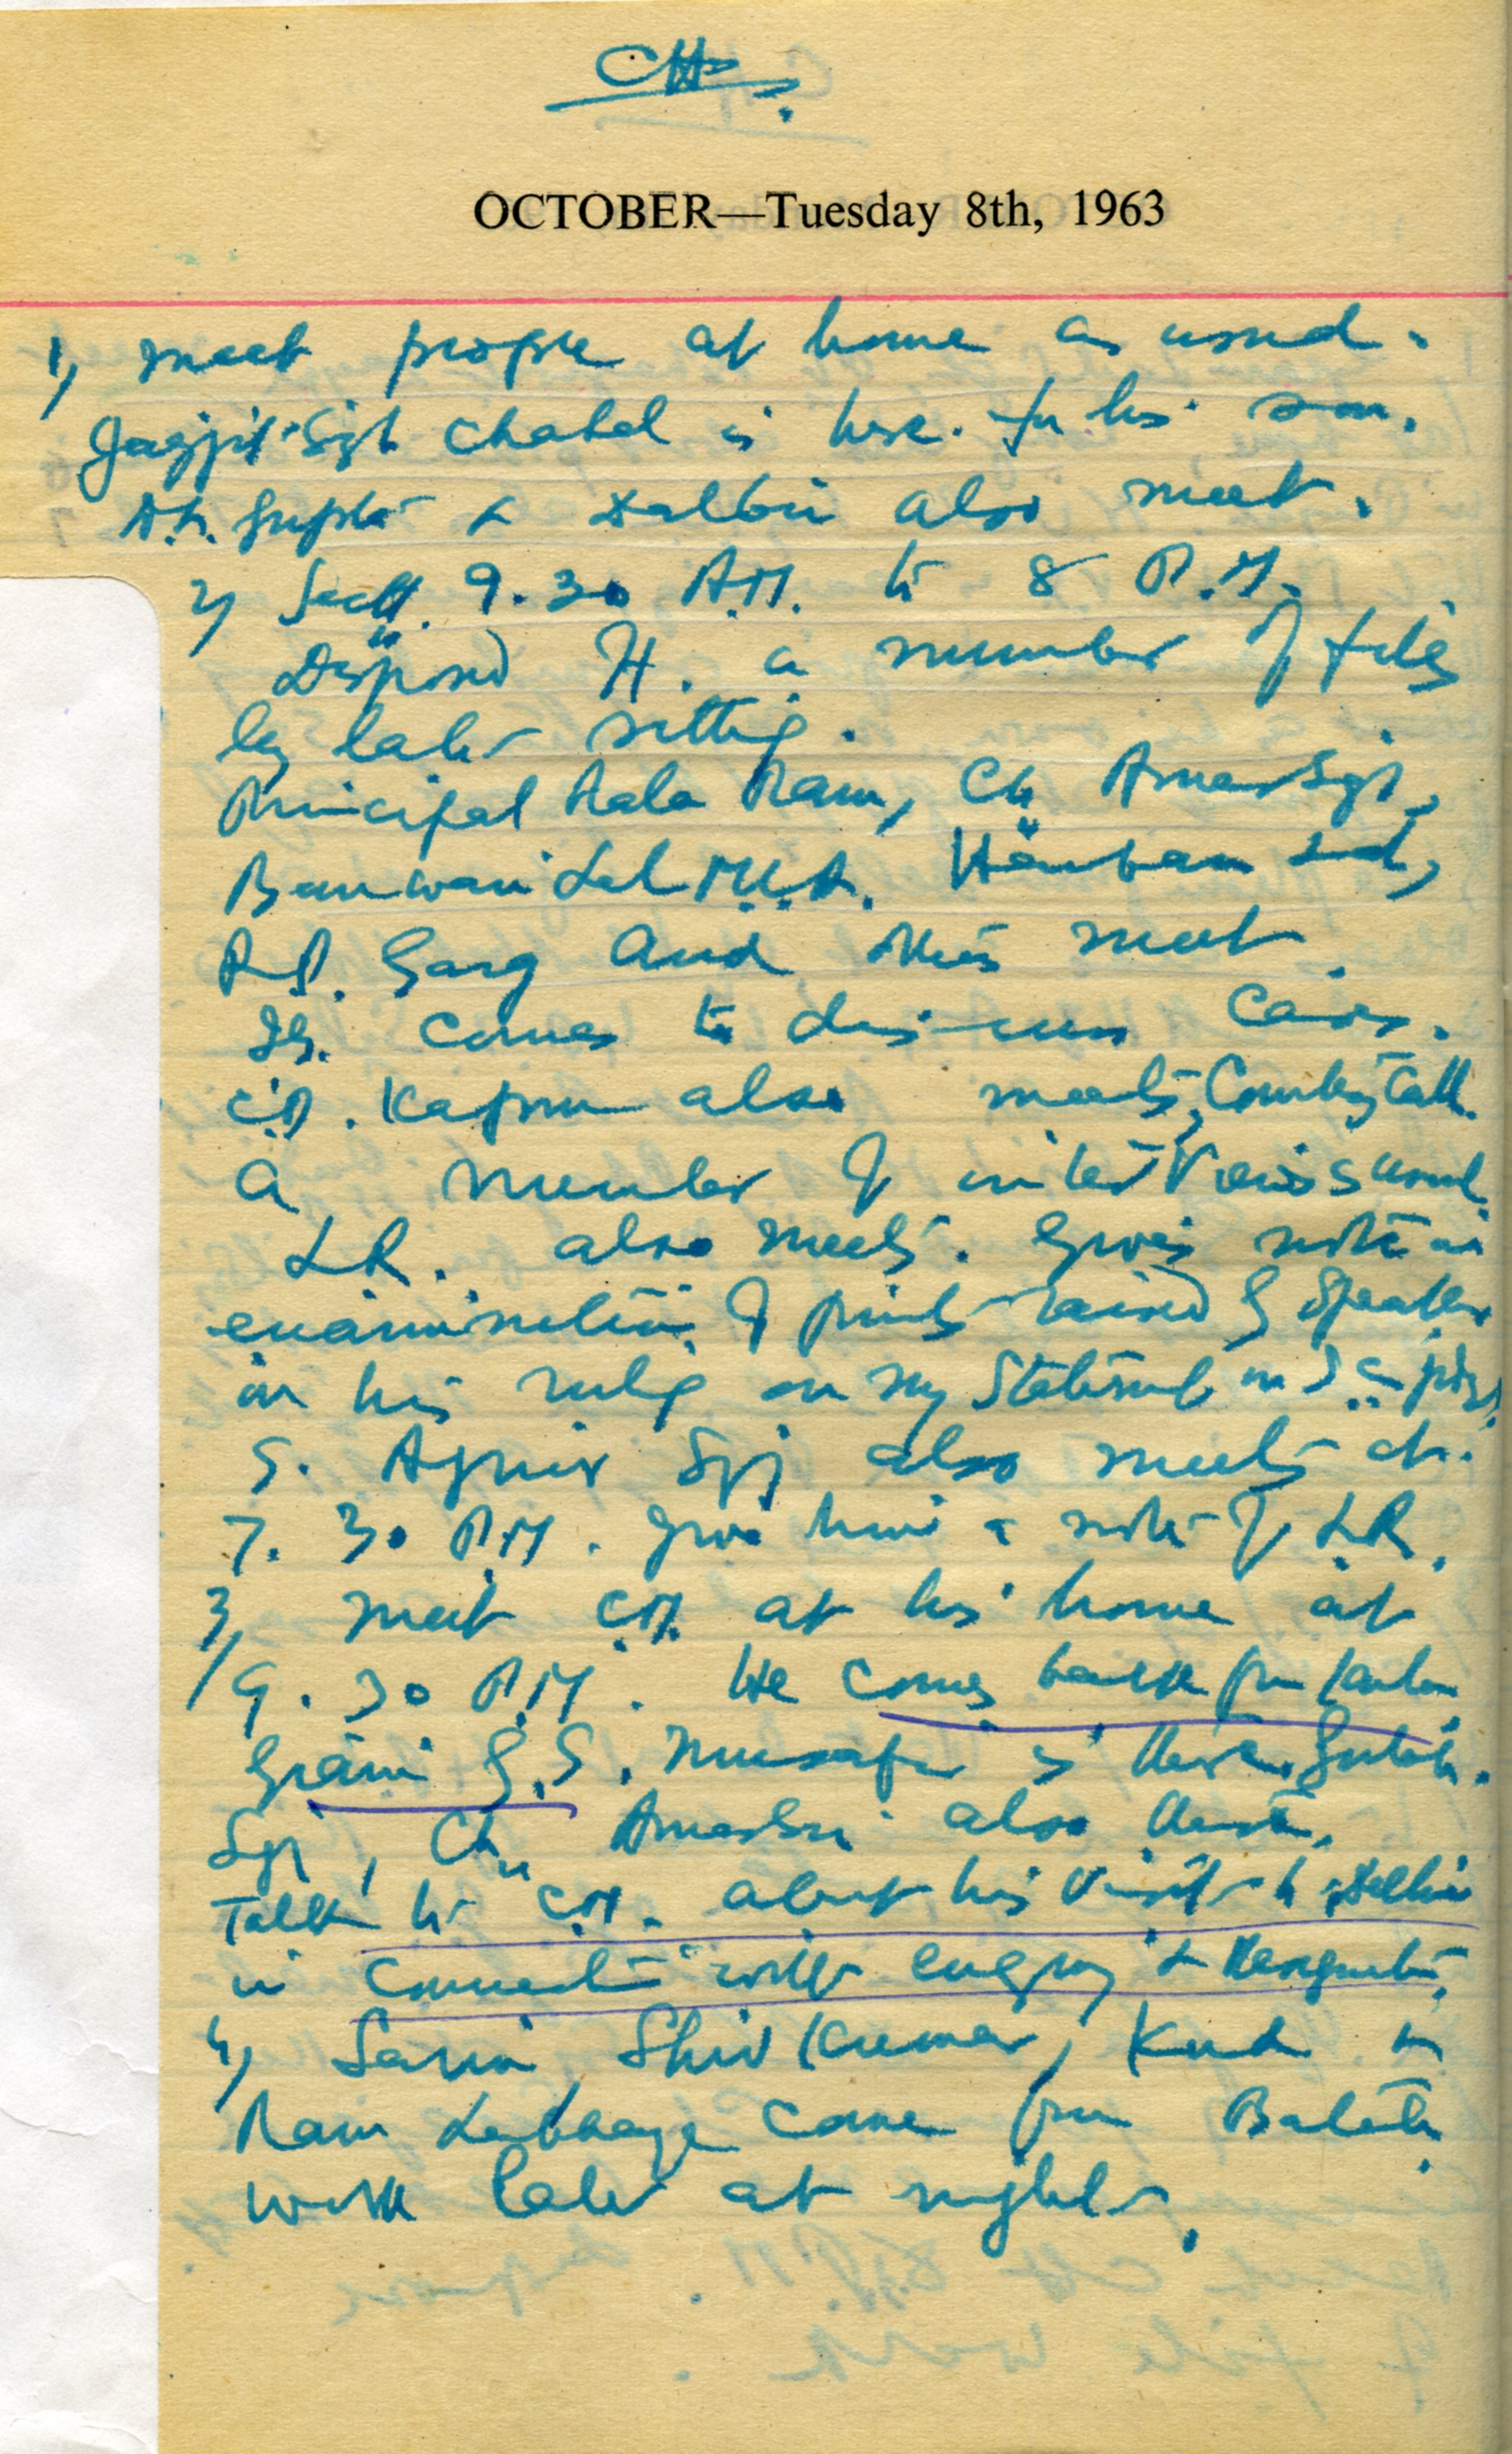 OCTOBER—Tuesday 8th, 1963
1) meet people at home as usual.
Jagjit Sgh Chahal is here for his son.
Gupta & Dalbir also meet.
2) Sectt. 9.30 A.M. to 8 P.M.
Disposed of a number of files
by late sitting.
Principal Rala Ram, Ch. Amar Sgh,
Banwari Lal M.L.A. Harbans Lal,
Garg and others meet.
IG. comes to discuss cases.
Kapur also meets, Courtesy Call.
a number of interviews usual.
L.R. also meets. Gives note on
examination of points raised by Speaker
in his ruling on my Statement in
S. Ajmer Sgh also meets at
7.30 P.M. give him a note of L.R.
3) meet C.M. at his home at
9.30 P.M. He comes back from
Giani G.S. Musafir is there.
Sgh, Ch. Amar Singh also there.
Talk to C.M. about his visit to Delhi
in connection with enquiry & resignation.
4) Sarin Shiv Kumar, Kund
Ram Labhaya come from Batala.
work late at night.